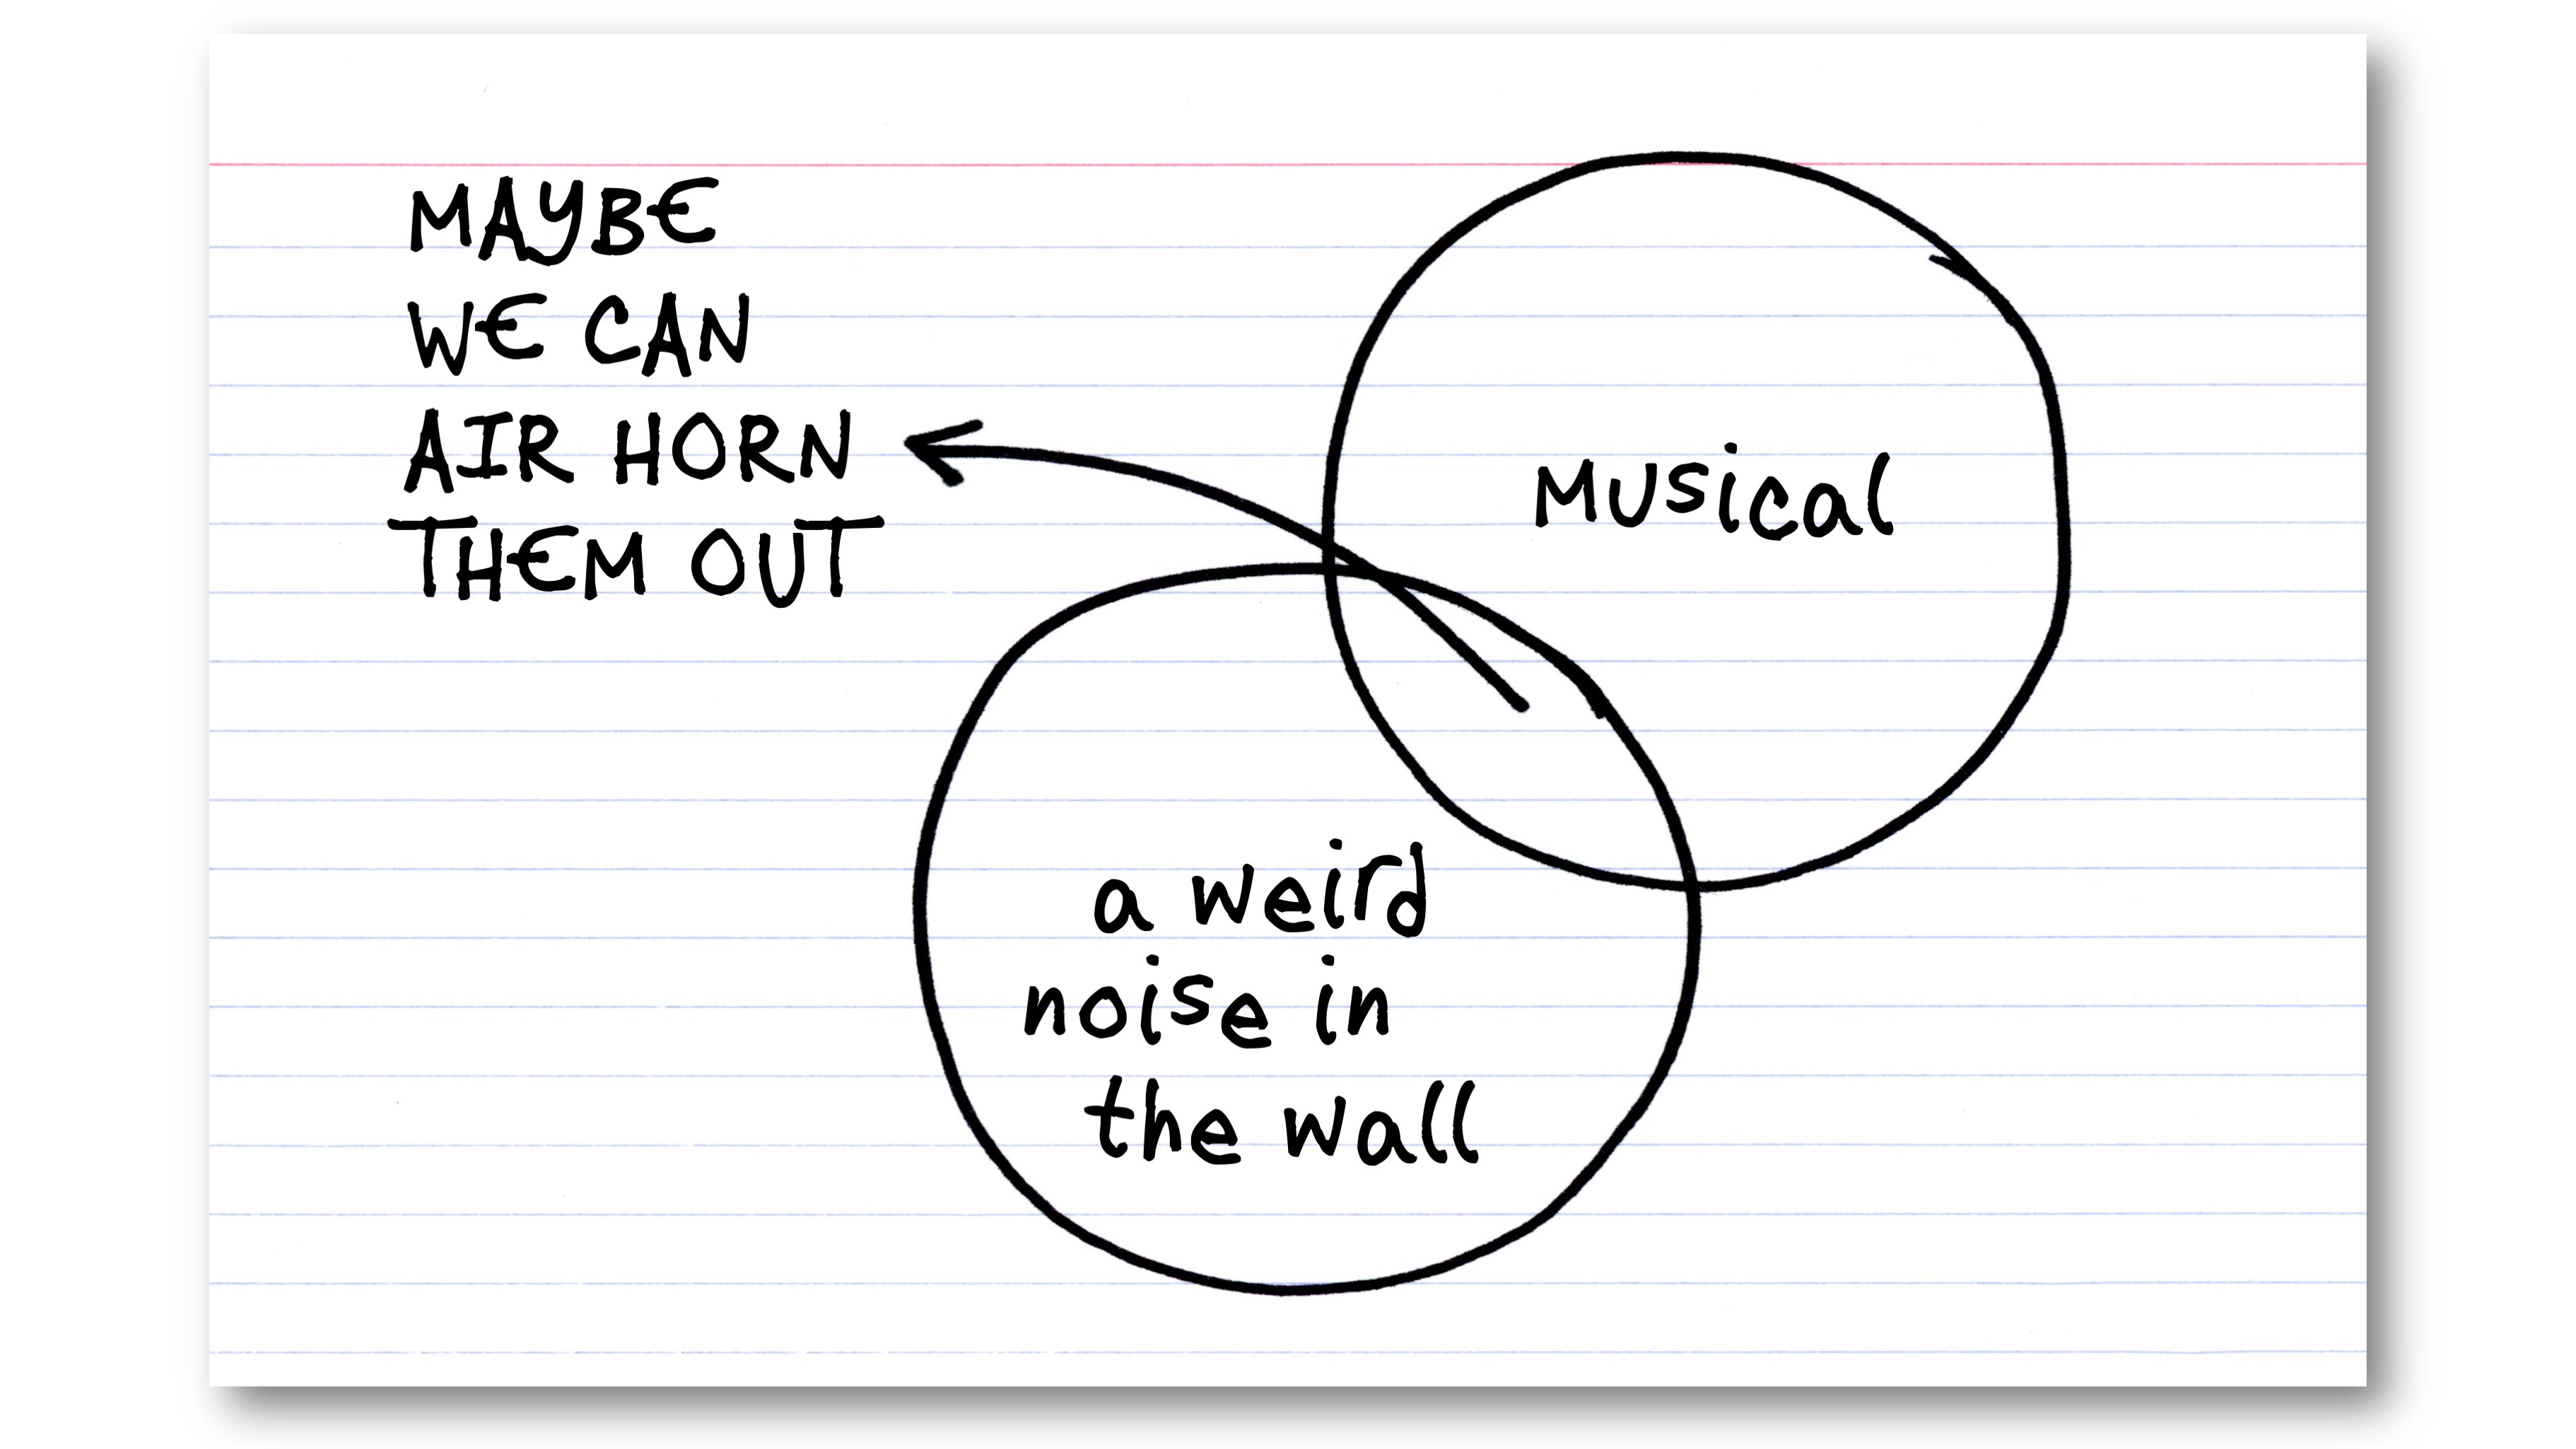 MAYBE
WE CAN
AIR HORN
THEM OUT
Musical
a weird
noise in
the wall